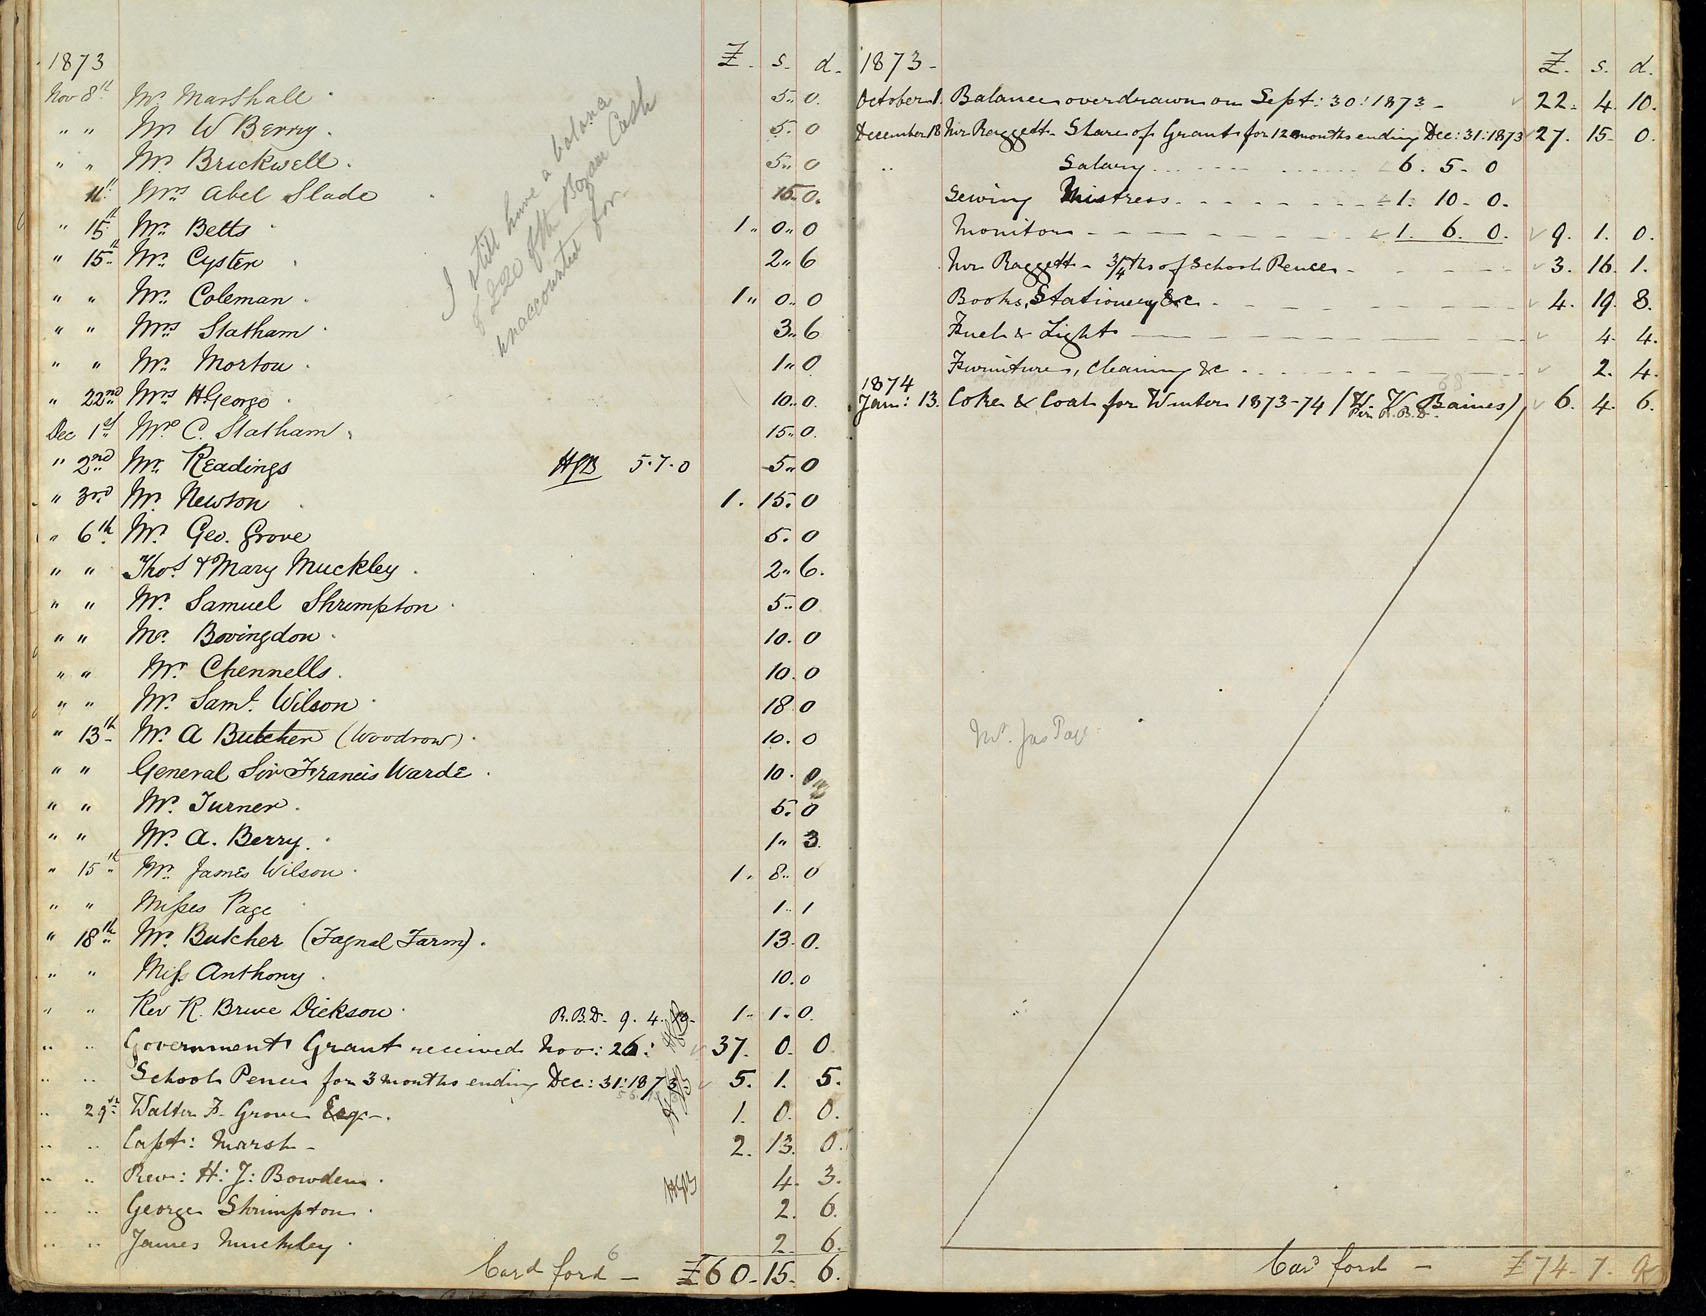 1873 £. s. d.
Nov 8th Mr Marshall 5.. 0.
" " Mr W Berry. 5. 0
" " Mr Brickwell. 5.. 0
11th Mrs Abel Slade 15. 0.
" 15th Mr. Betts 1.. 0.. 0
" 15th Mr. Cyster 2.. 6
" " Mr. Coleman 1.. 0.. 0
" " Mrs Statham 3.. 6
" " Mr. Morton 1.. 0
" 22nd Mrs H George 10.. 0.
Dec 1st Mr C. Statham 15.. 0.
" 2nd Mr. Readings HJB 5.7.0 5.. 0
" 3rd Mr. Newton 1. 15. 0
" 6th Mr. Geo. Grove 5. 0
" " Thos. & Mary Muckley. 2.. 6.
" " Mr. Samuel Shrimpton 5.. 0
" " Mr. Bovingdon 10. 0
" " Mr. Chennells. 10. 0
" " Mr. Saml. Wilson 18 0
" 13th Mr. A Butcher (Woodrow) 10. 0
" " General Sir Francis Warde 10. 0
" " Mr. Turner. 5. 0
" " Mr. A. Berry. 1.. 3
" 15th Mr. James Wilson 1. 8.. 0
" " Misses Page 1.. 1
" 18th Mr. Butcher (Tagnal Farm). 13. 0.
" " Miss Anthony 10. 0
" " Rev R. Bruce Dickson R.B.D. 9. 4. 1.. 1. 0.
" " Government Grant received Nov: 26: 37. 0. 0.
" " School Pence for 3 months ending Dec: 31: 1873 5. 1. 5.
" 29th Walter F. Grove Esqr. 1. 0. 0.
" " Capt: Marsh 2. 13. 0.
" " Rev: H: J: Bowden. HJB 4. 3.
" " George Shrimpton 2. 6.
" " James Muckley 2. 6.
Card ford £60-15-6.
I still have a balance
of £20 of the Bazaar Cash
unaccounted for.
1873 £. s. d.
October 1. Balance overdrawn on Sept: 30: 1873 22. 4. 10.
December 18 Mr Raggett Share of Grant for 12 months ending Dec: 31: 1873 27. 15. 0.
" Salary 6. 5. 0
Sewing Mistress 1. 10. 0.
Monitor 1. 6. 0. 9. 1. 0.
Mr Raggett 3/4ths of School Pence 3. 16. 1.
Books, Stationery &c 4. 19. 8.
Fuel & Light 4. 4.
Furniture, cleaning &c 2. 4.
1874
Jan: 13. Coke & Coal for Winter 1873-74 (W. V. Baines) 6. 4. 6.
Per R.B.D.
Mr. Jas Page
Card ford £74. 7. 9